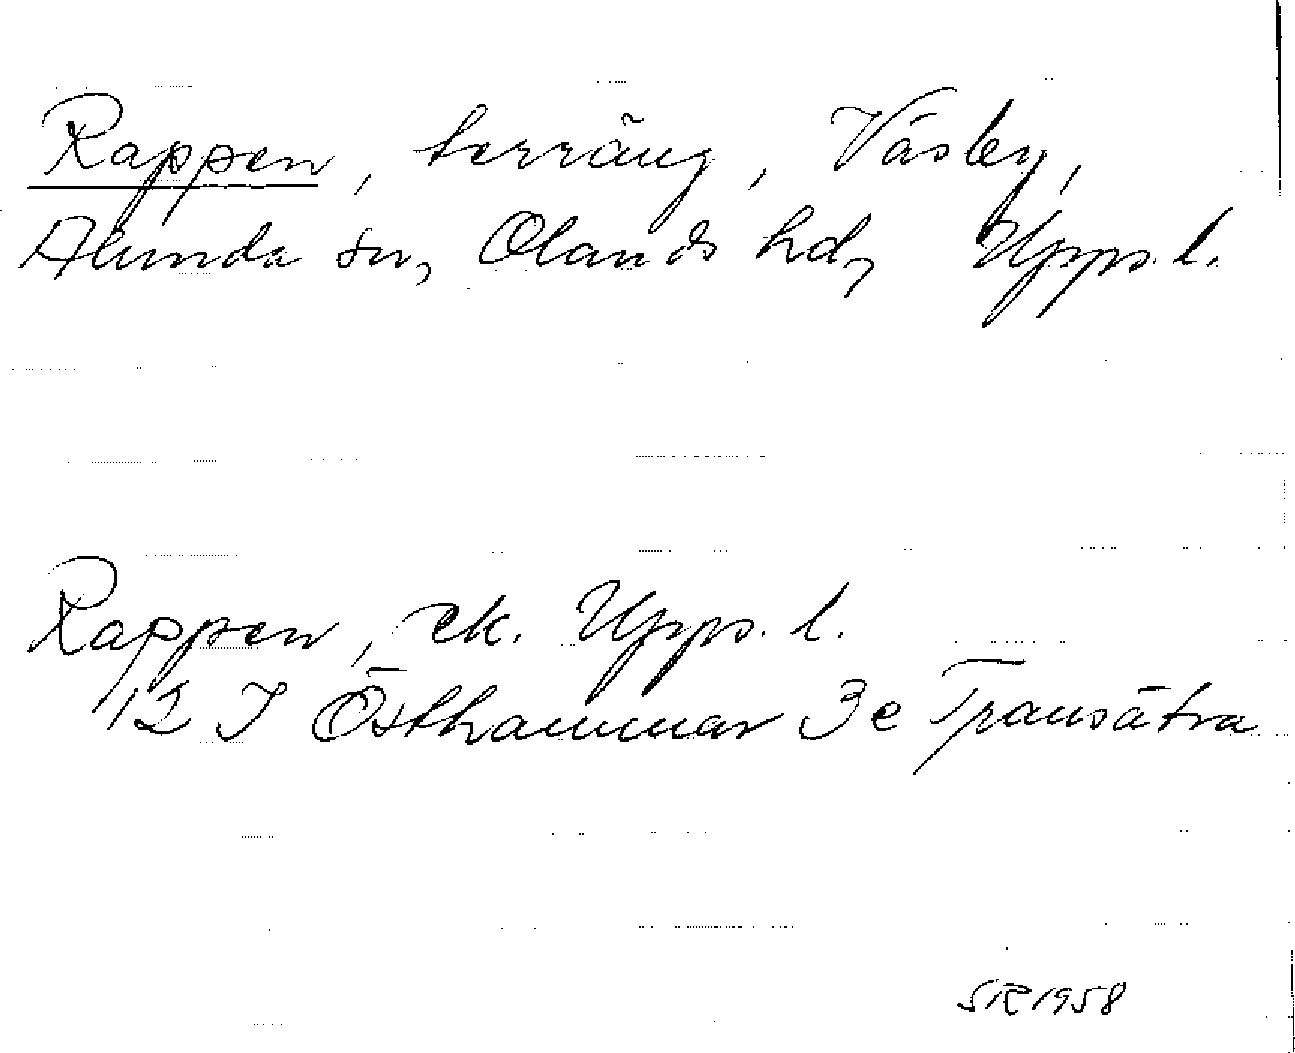 Rappen, terräng, Väsby,
Alunda sn, Olands hd, Upps. l.
Rappen, ek. Upps. l.
12 I Östhammar 3e Transätra
SR 1958